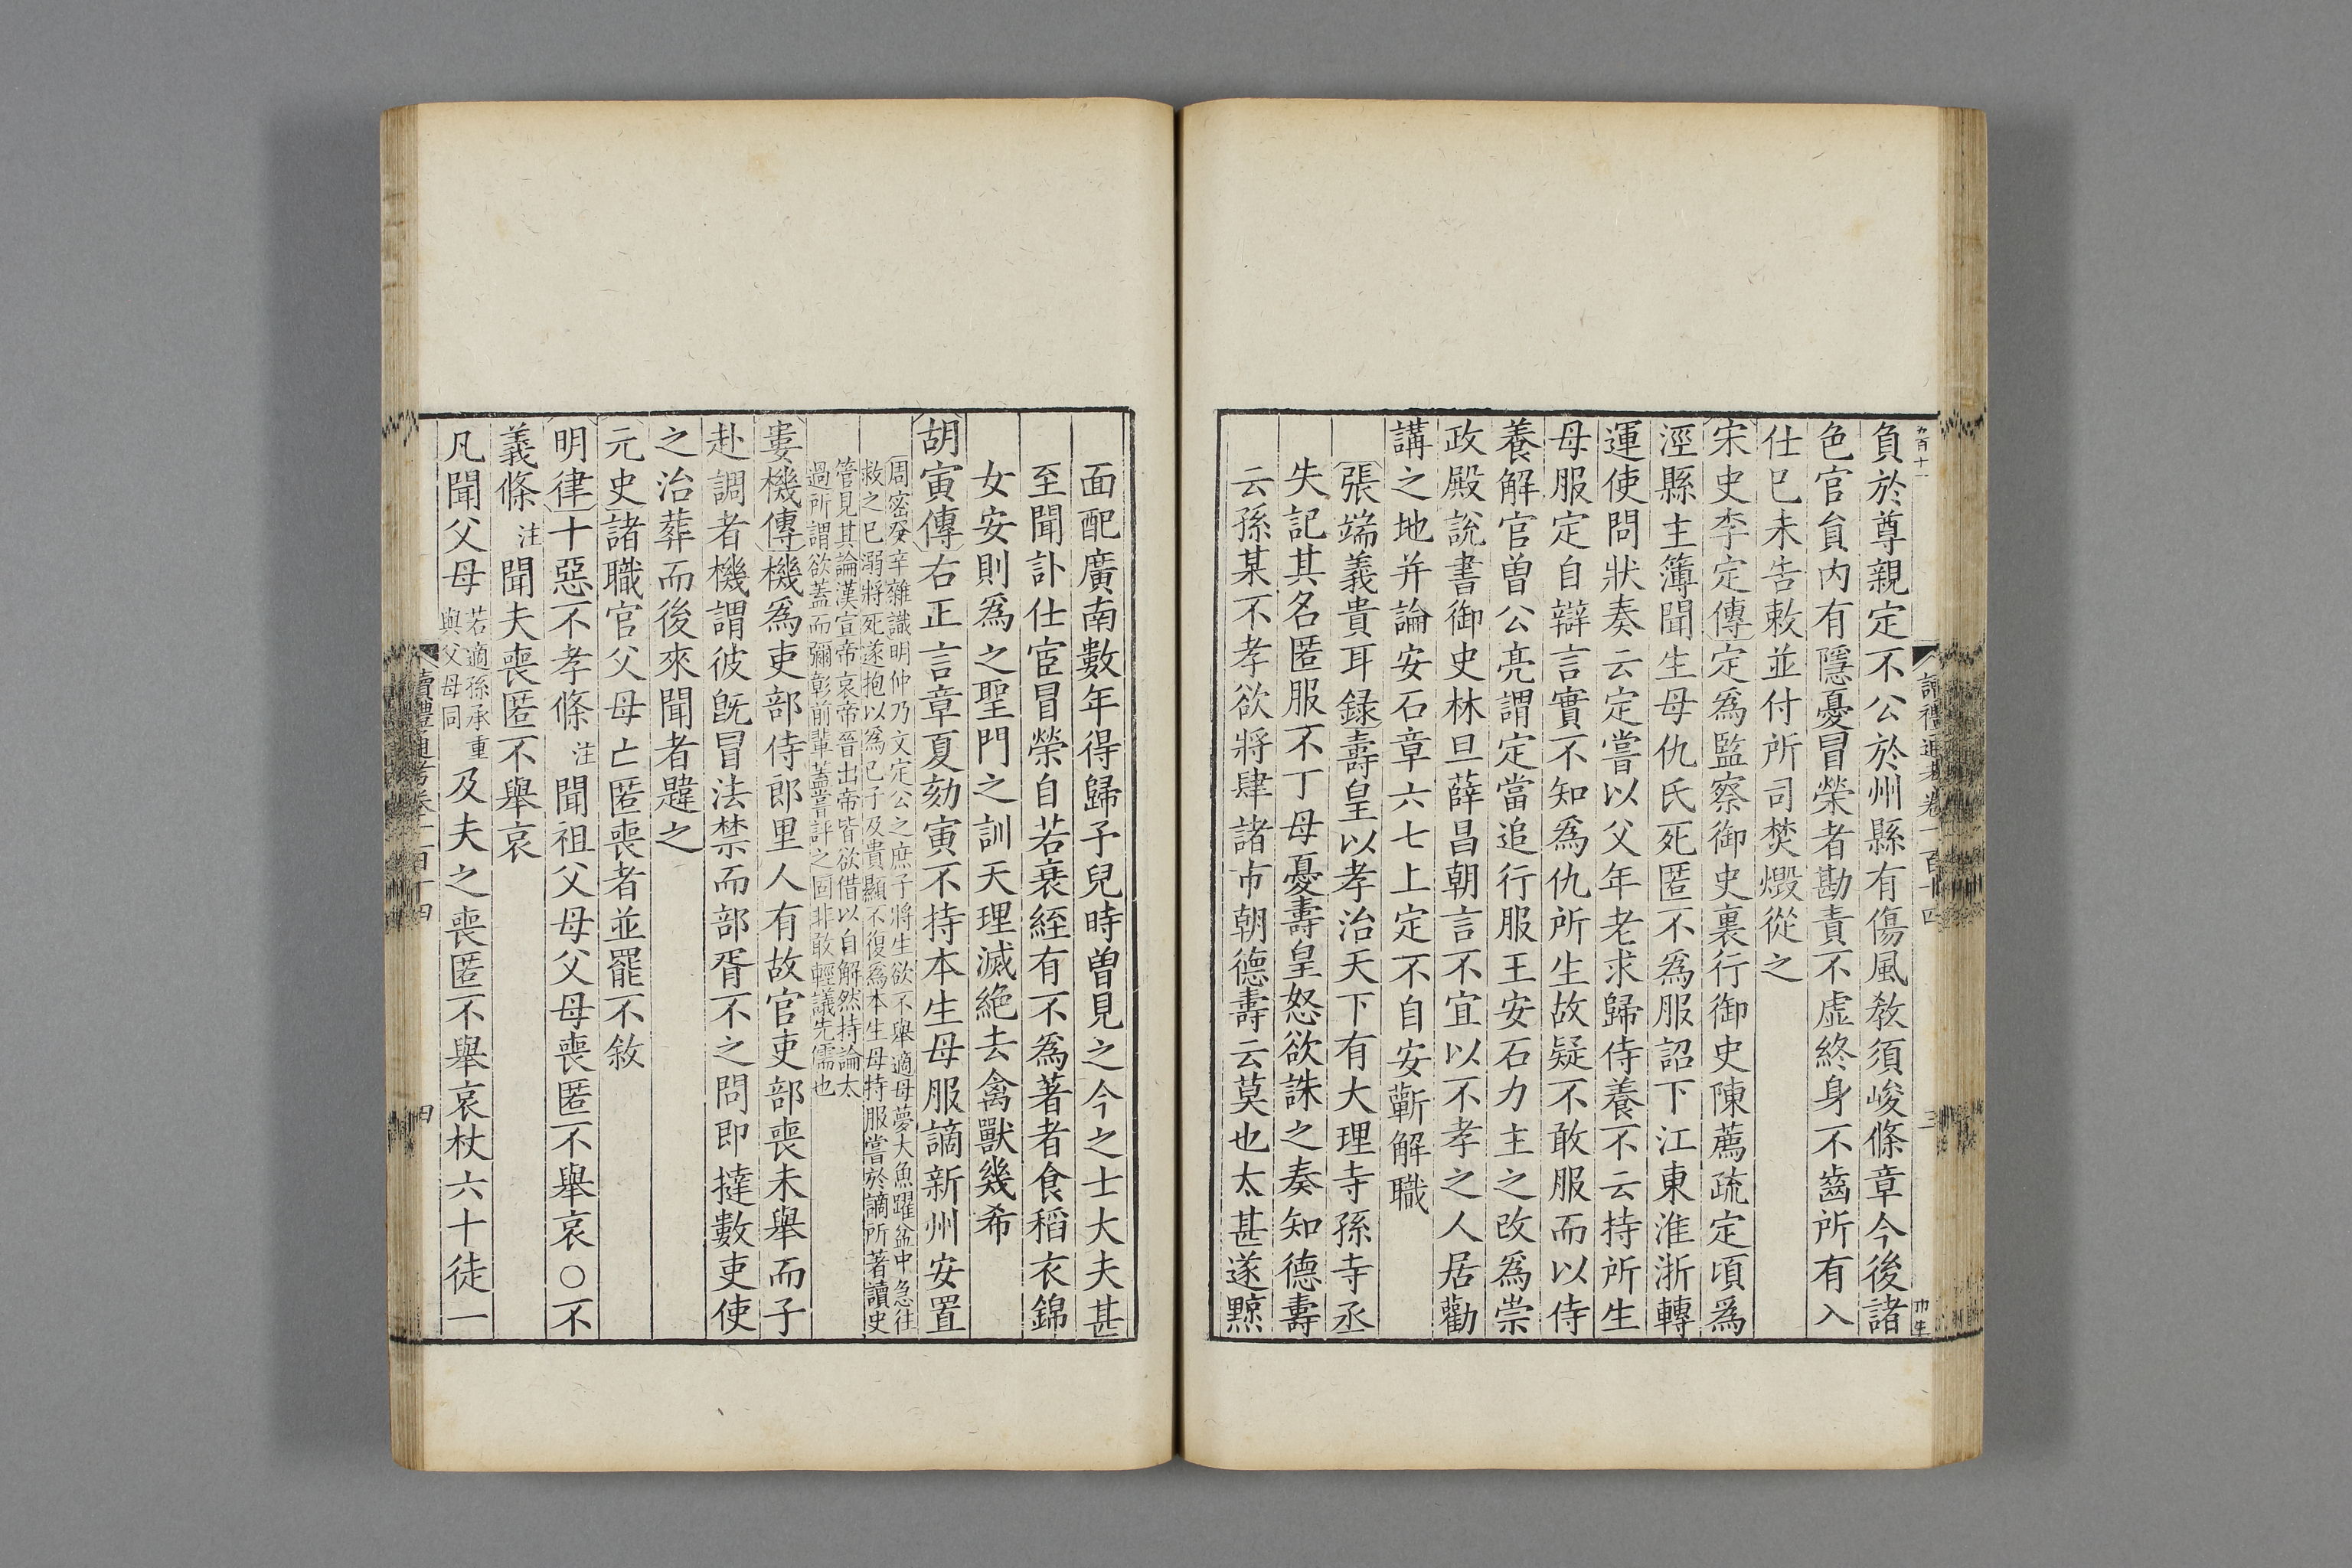 負於尊親定不公於州縣有傷風敎須峻條章今後諸
色官員內有隱憂冒榮者勘責不虛終身不齒所有入
仕已未告敕並付所司焚燬從之
宋史李定傳定爲監察御史裏行御史陳薦疏定頃爲
涇縣主簿聞生母仇氏死匿不爲服詔下江東淮浙轉
運使問狀奏云定嘗以父年老求歸侍養不云持所生
母服定自辯言實不知爲仇所生故疑不敢服而以侍
養解官曾公亮謂定當追行服王安石力主之改爲崇
政殿說書御史林旦薛昌朝言不宜以不孝之人居勸
講之地并論安石章六七上定不自安蘄解職
張端義貴耳錄壽皇以孝治天下有大理寺孫寺丞
失記其名匿服不丁母憂壽皇怒欲誅之奏知德壽
云孫某不孝欲將肆諸市朝德壽云莫也太甚遂黥
面配廣南數年得歸予兒時曾見之今之士大夫甚
至聞訃仕宦冒榮自若衰絰有不爲著者食稻衣錦
女安則爲之聖門之訓天理滅絶去禽獸幾希
胡寅傳右正言章夏劾寅不持本生母服謫新州安置
周密癸辛雜識明仲乃文定公之庶子將生欲不舉適母夢大魚躍盆中急往
救之已溺將死遂抱以爲己子及貴顯不復爲本生母持服嘗於謫所著讀史
管見其論漢宣帝哀帝晉出帝皆欲借以自解然持論太
過所謂欲蓋而彌彰前輩蓋嘗評之固非敢輕議先儒也
婁機傳機爲吏部侍郎里人有故官吏部喪未舉而子
赴調者機謂彼旣冒法禁而部胥不之問即撻數吏使
之治葬而後來聞者韙之
元史諸職官父母亡匿喪者並罷不敘
明律十惡不孝條注聞祖父母父母喪匿不舉哀○不
義條注聞夫喪匿不舉哀
凡聞父母若適孫承重與父母同及夫之喪匿不舉哀杖六十徒一
讀禮通考卷一百十四
三
讀禮通考卷一百十四
四